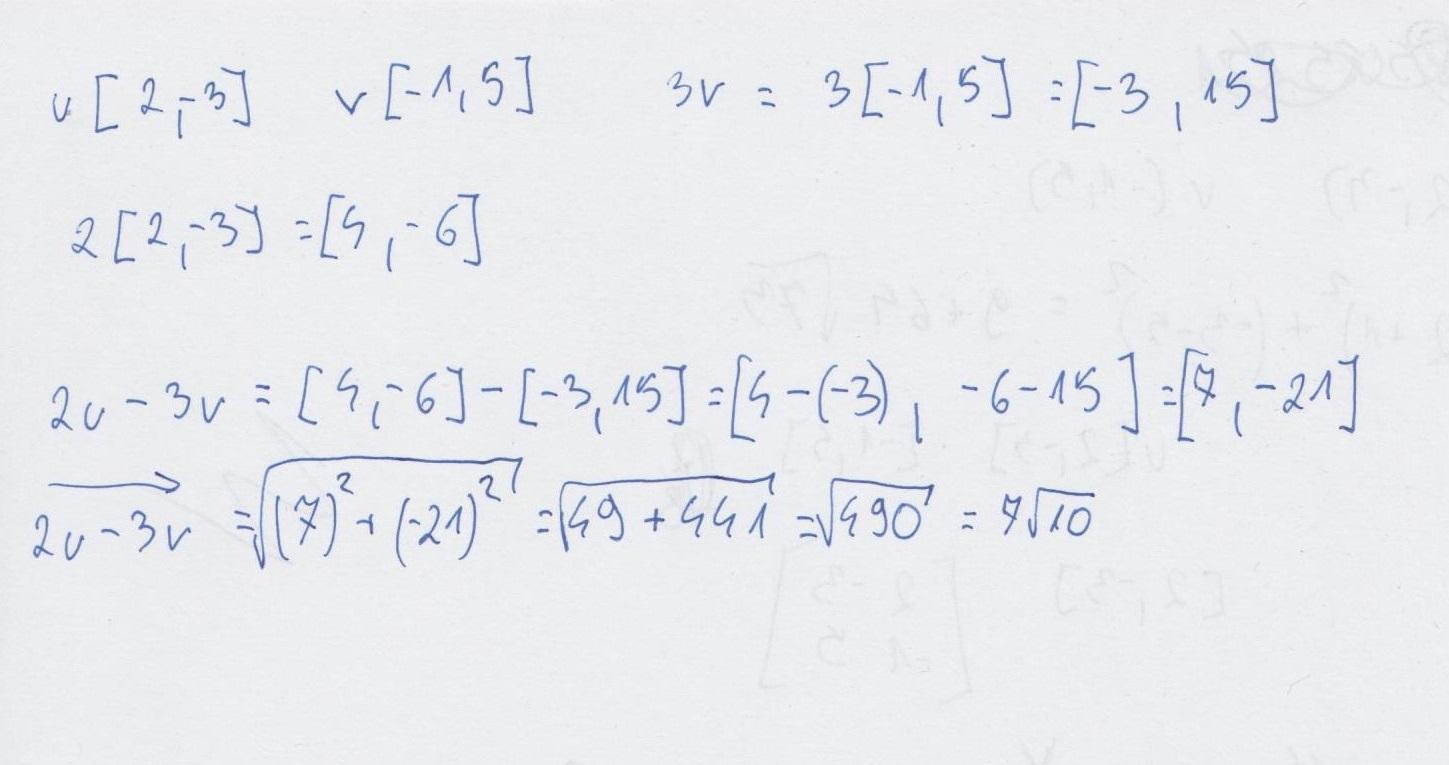 u [2,-3] v [-1,5] 3v = 3[-1,5] = [-3, 15]
2[2,-3] = [4,-6]
2u - 3v = [4,-6] - [-3,15] = [4-(-3), -6-15] = [7,-21]
2u - 3v = √((7)² + (-21)²) = √(49 + 441) = √490 = 7√10